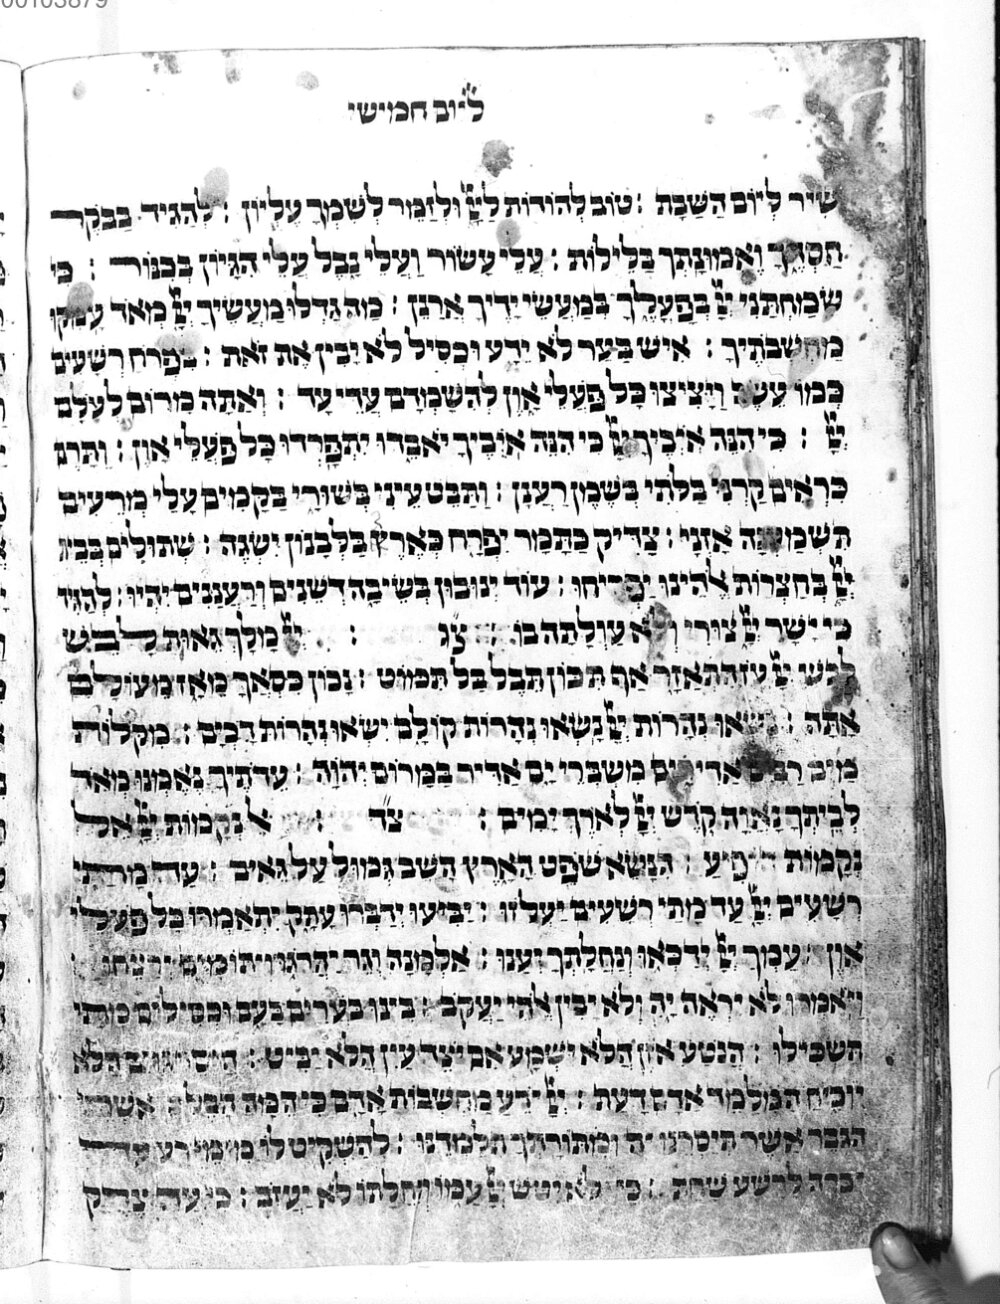 00103879
ל״יום חמישי
שיר ליום השבת : טוב להודות ליי ולזמר לשמך עליון : להגיד בבקר
חסדך ואמונתך בלילות : עלי עשור ועלי נבל עלי הגיון בכנור : כי
שמחתני יי בפעלך במעשי ידיך ארנן : מה גדלו מעשיך יי מאד עמקו
מחשבתיך : איש בער לא ידע וכסיל לא יבין את זאת : בפרח רשעים
כמו עשב ויציצו כל פעלי און להשמדם עדי עד : ואתה מרום לעלם
יי : כי הנה איביך יי כי הנה איביך יאבדו יתפרדו כל פעלי און : ותרם
כראים קרני בלתי בשמן רענן : ותבט עיני בשורי בקמים עלי מרעים
תשמענה אזני : צדיק כתמר יפרח כארז בלבנון ישגה : שתולים בבית
יי בחצרות אלהינו יפריחו : עוד ינובון בשיבה דשנים ורעננים יהיו : להגיד
כי ישר יי צורי ולא עולתה בו : צג : יי מלך גאות לבש
לבש יי עז התאזר אף תכון תבל בל תמוט : נכון כסאך מאז מעולם
אתה : נשאו נהרות יי נשאו נהרות קולם ישאו נהרות דכים : מקלות
מים רבים אדירים משברי ים אדיר במרום יהוה : עדתיך נאמנו מאד
לביתך נאוה קדש יי לארך ימים : צד : אל נקמות יי אל
נקמות הופיע : הנשא שפט הארץ השב גמול על גאים : עד מתי
רשעים יי עד מתי רשעים יעלזו : יביעו ידברו עתק יתאמרו כל פעלי
און : עמך יי ידכאו ונחלתך יענו : אלמנה וגר יהרגו ויתומים ירצחו
ויאמרו לא יראה יה ולא יבין אלהי יעקב : בינו בערים בעם וכסילים מתי
תשכילו : הנטע אזן הלא ישמע אם יצר עין הלא יביט : היסר גוים הלא
יוכיח המלמד אדם דעת : יי ידע מחשבות אדם כי המה הבל : אשרי
הגבר אשר תיסרנו יה ומתורתך תלמדנו : להשקיט לו מימי רע עד
יכרה לרשע שחת : כי לא יטש יי עמו ונחלתו לא יעזב : כי עד צדק